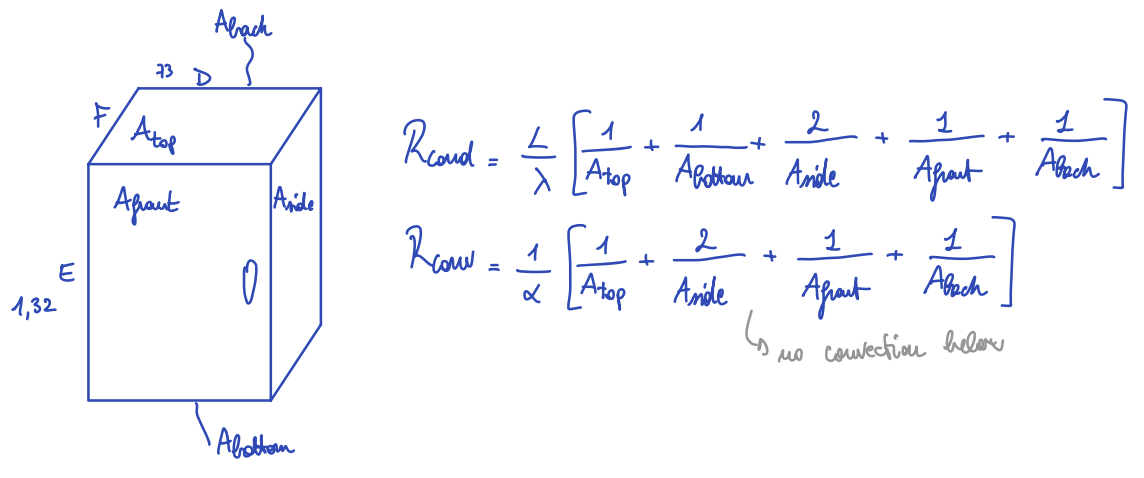 Aback
73 D
F
Atop
Afront
Aside
E
1,32
Abottom
Rcond = L/λ [1/Atop + 1/Abottom + 2/Aside + 1/Afront + 1/Aback]
Rconv = 1/α [1/Atop + 2/Aside + 1/Afront + 1/Aback]
no convection below